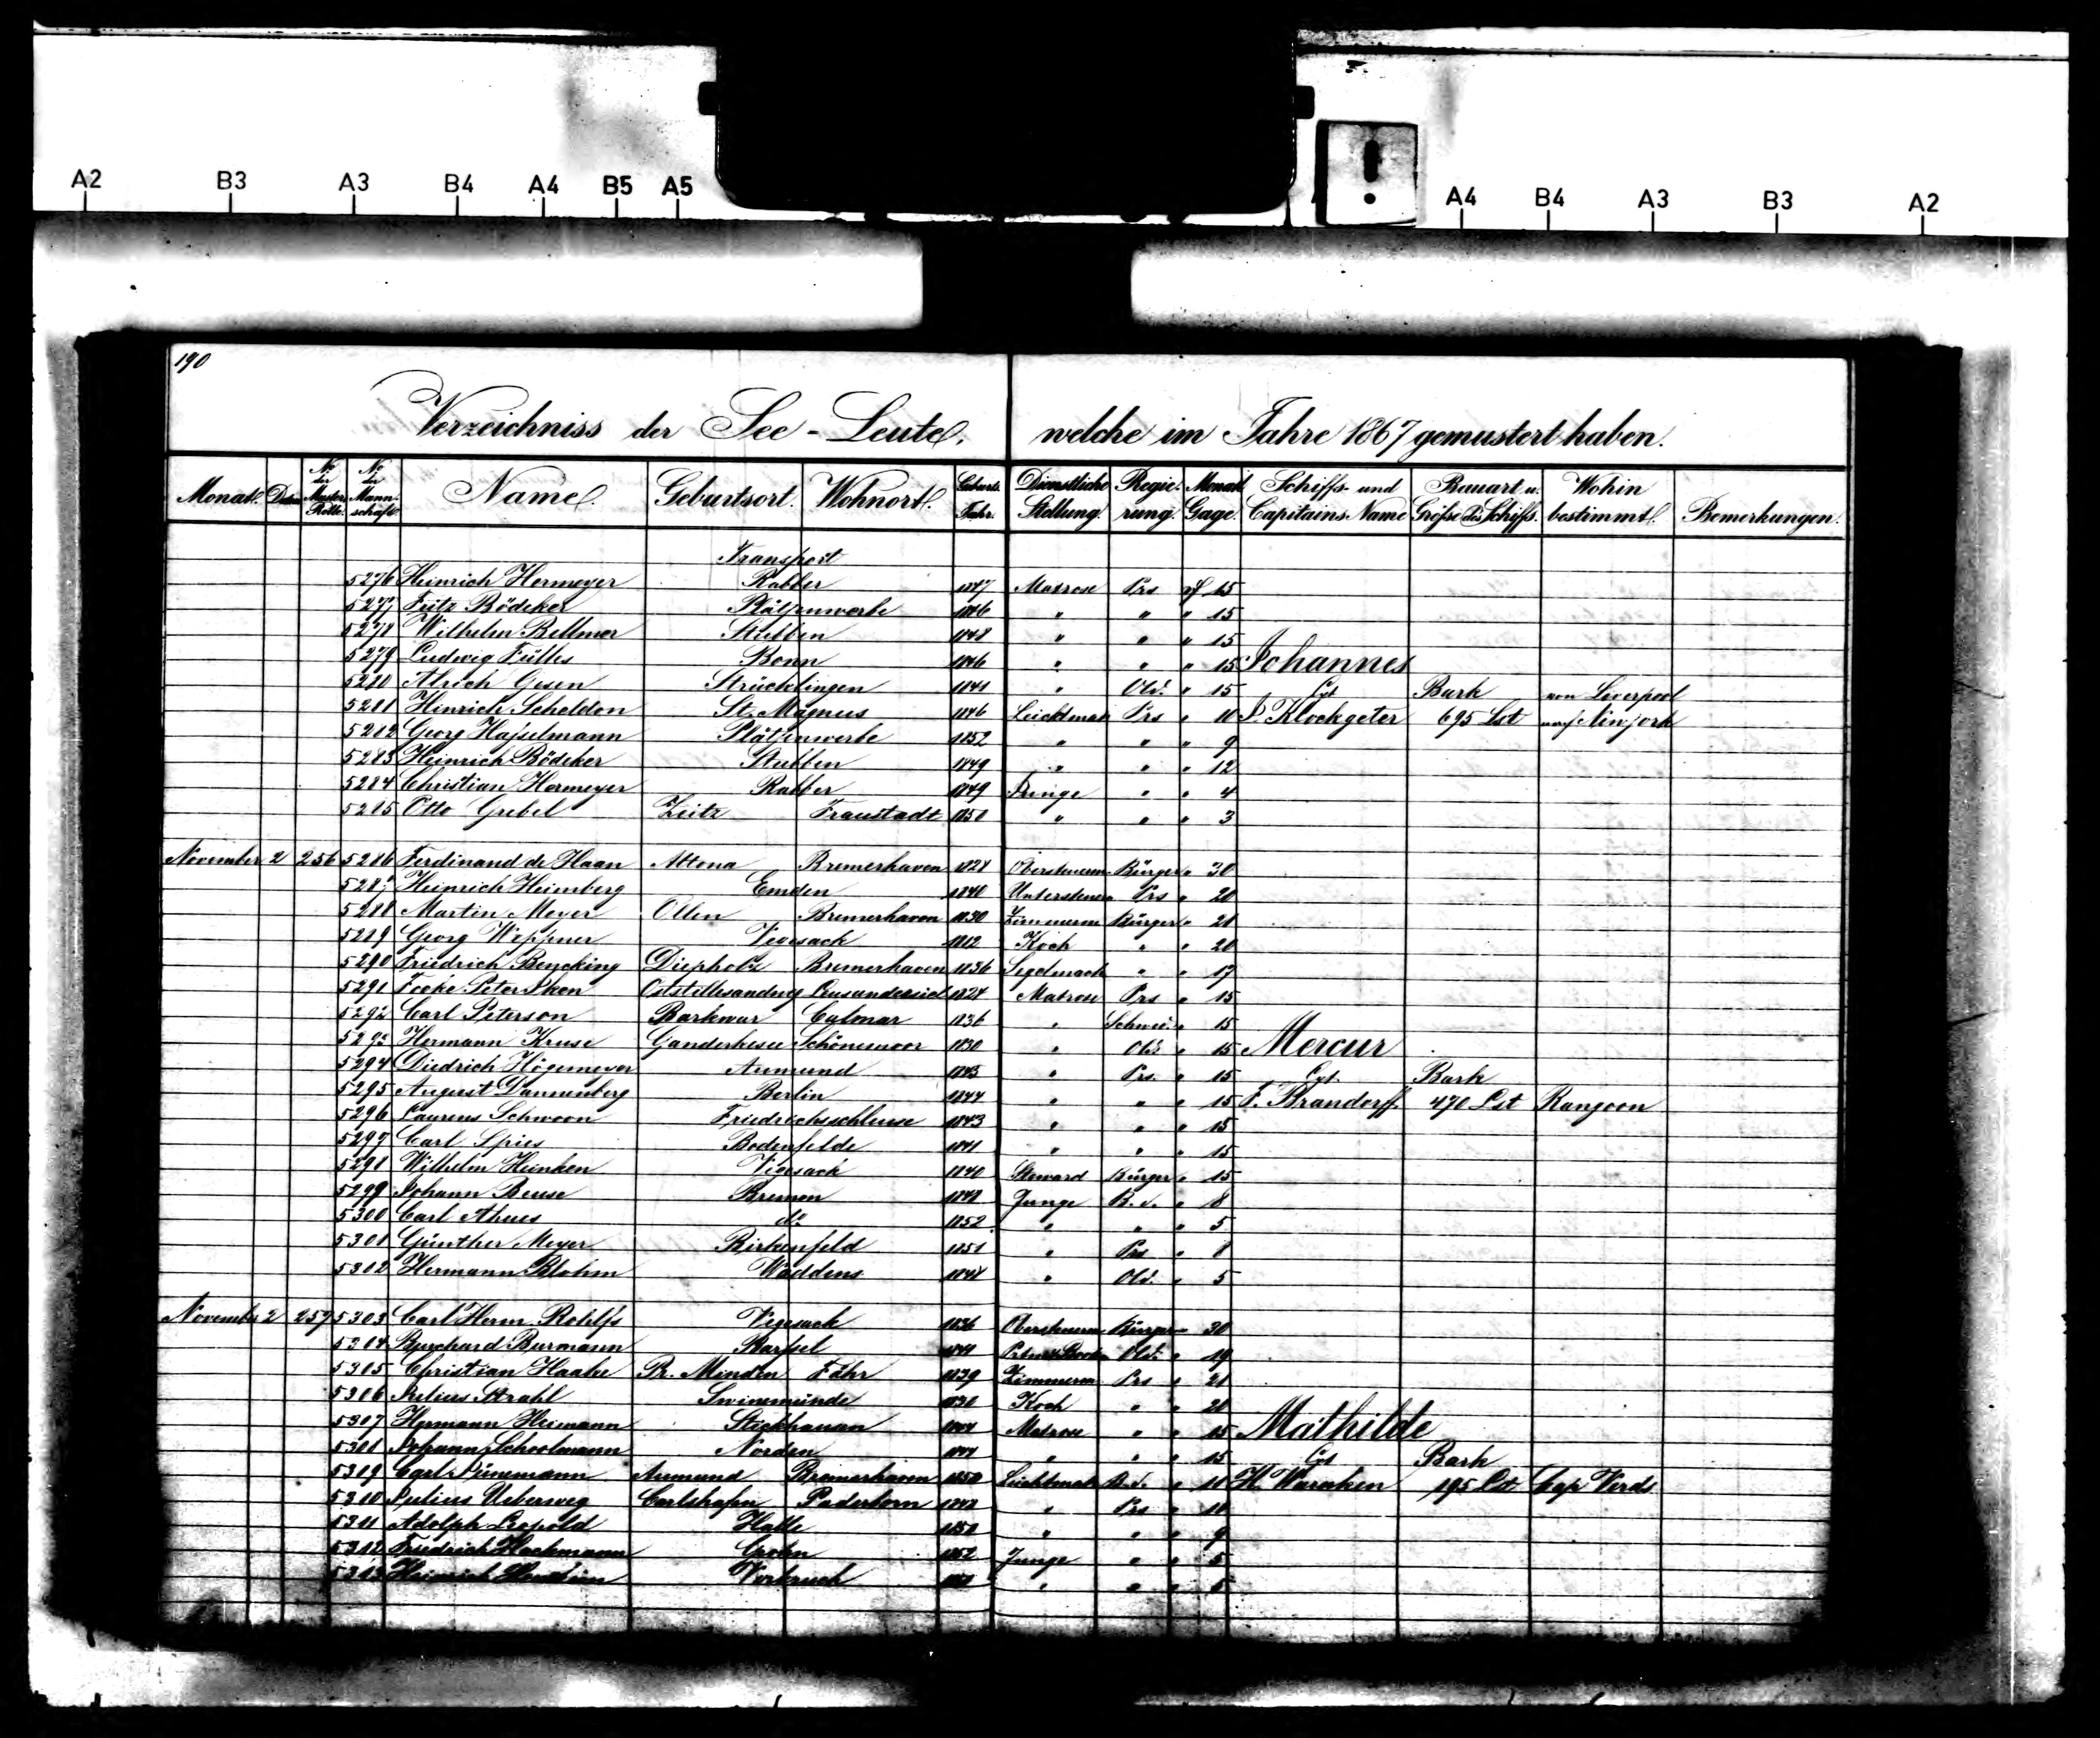 A2 B3 A3 B4 A4 B5 A5 ! A4 B4 A3 B3 A2
190
Verzeichniss der See-Leute, welche im Jahre 1867 gemustert haben.
Monat. Datum No der Muster Rolle. No der Mannschaft. Name. Geburtsort. Wohnort. Geburts Jahr. Dienstliche Stellung. Regierung. Monatl. Gage. Schiffs- und Capitains Name Bauart u. Grösse des Schiffs. Wohin bestimmt. Bemerkungen.
Transport
5276 Heinrich Hermeyer Rabber 1847 Matrose Prs 15
5277 Fritz Bödeker Plätzenwerbe 1846 " " " 15
5278 Wilhelm Bellmer Stubben 1848 " " " 15
5279 Ludwig Fülles Bonn 1846 " " " 15 Johannes
5280 Alrich Gesen Strücklingen 1841 " Old. " 15 Cpt Bark von Liverpool
5281 Hinrich Scheldon St. Magnus 1846 Leichtmatr Prs " 10 Klockgeter 695 Lst nach Newjork
5282 Georg Hasselmann Plätzenwerbe 1852 " " " 9
5283 Heinrich Bödeker Stubben 1849 " " " 12
5284 Christian Hermeyer Rabber 1849 Junge " " 4
5285 Otto Grebel Zeitz Fraustadt 1850 " " " 3
November 2 256 5286 Ferdinand de Haan Altona Bremerhaven 1828 Obersteuerm Bürger " 30
5287 Heinrich Heimberg Emden 1840 Untersteuerm Prs " 20
5288 Martin Meyer Ollen Bremerhaven 1830 Zimmerm Bürger " 21
5289 Georg Weppner Vegesack 1812 Koch " " 20
5290 Friedrich Bencking Diepholz Bremerhaven 1836 Segelmach " " 17
5291 Focke Peter Iken 1824 Matrose Prs " 15
5292 Carl Peterson Barkwar Calmar 1836 " Schwed. " 15
5293 Hermann Kruse Ganderkesee Schönemoor 1830 " Old. " 15 Mercur
5294 Diedrich Högemeyer Aumund 1843 " Prs. " 15 Cpt. Bark
5295 August Dannenberg Berlin 1844 " " " 15 F. Brandorff 470 Lst Rangoon
5296 Laurens Schwoon Friedrichsschleuse 1843 " " " 15
5297 Carl Spies Bodenfelde 1841 " " " 15
5298 Wilhelm Heinken Vegesack 1840 Steward Bürger " 15
5299 Johann Beuse Bremen 1848 Junge B. S. " 8
5300 Carl Ahues do 1852 " " " 5
5301 Günther Meyer Birkenfeld 1851 " Prs " 8
5302 Hermann Blohm Waddens 1848 " Old. " 5
November 2 257 5303 Carl Herm. Rohlfs Vegesack 1836 Obersteuerm Bürger " 30
5304 Burchard Burmann Barssel Old. " 19
5305 Christian Haake Pr. Minden Fähr 1839 Zimmerm Prs " 21
5306 Julius Strahl Swinemünde 1838 Koch " " 20
5307 Hermann Heimann Stickhausen 1844 Matrose " " 15 Mathilde
5308 Johann Schoolmann Norden " " " 15 Cpt Bark
5309 Carl Pünemann Aumund Bremerhaven 1850 Leichtmatr B. S. " 10 H. Warnken 195 Lst Cap Verds
5310 Julius Ueberweg Carlshafen Paderborn 1848 " Prs " 10
5311 Adolph Leopold Halle 1850 " " " 9
5312 Friedrich Hackmann Grohn 1852 Junge " " 5
5313 Heinrich Vorbruch " " " 5